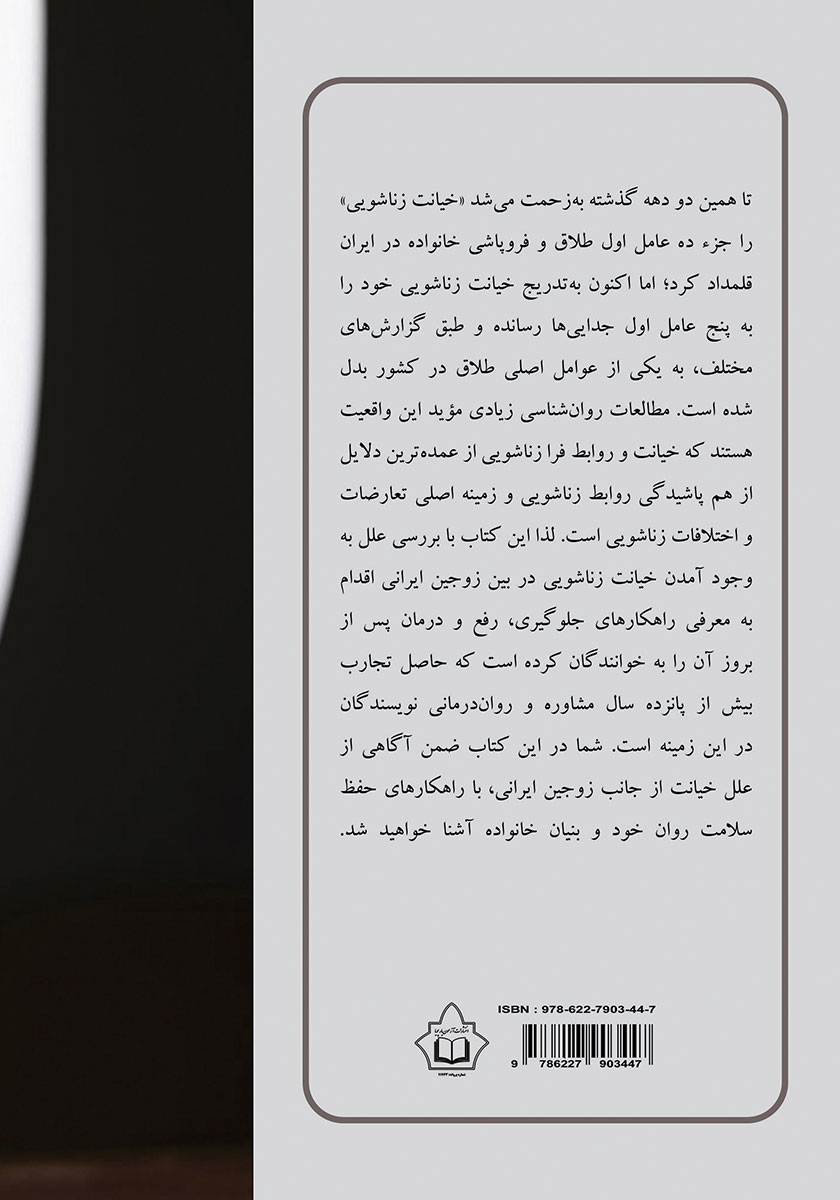 تا همین دو دهه گذشته به‌زحمت می‌شد «خیانت زناشویی»
را جزء ده عامل اول طلاق و فروپاشی خانواده در ایران
قلمداد کرد؛ اما اکنون به‌تدریج خیانت زناشویی خود را
به پنج عامل اول جدایی‌ها رسانده و طبق گزارش‌های
مختلف، به یکی از عوامل اصلی طلاق در کشور بدل
شده است. مطالعات روان‌شناسی زیادی مؤید این واقعیت
هستند که خیانت و روابط فرا زناشویی از عمده‌ترین دلایل
از هم پاشیدگی روابط زناشویی و زمینه اصلی تعارضات
و اختلافات زناشویی است. لذا این کتاب با بررسی علل به
وجود آمدن خیانت زناشویی در بین زوجین ایرانی اقدام
به معرفی راهکارهای جلوگیری، رفع و درمان پس از
بروز آن را به خوانندگان کرده است که حاصل تجارب
بیش از پانزده سال مشاوره و روان‌درمانی نویسندگان
در این زمینه است. شما در این کتاب ضمن آگاهی از
علل خیانت از جانب زوجین ایرانی، با راهکارهای حفظ
سلامت روان خود و بنیان خانواده آشنا خواهید شد.
ISBN : 978-622-7903-44-7
9 786227 903447